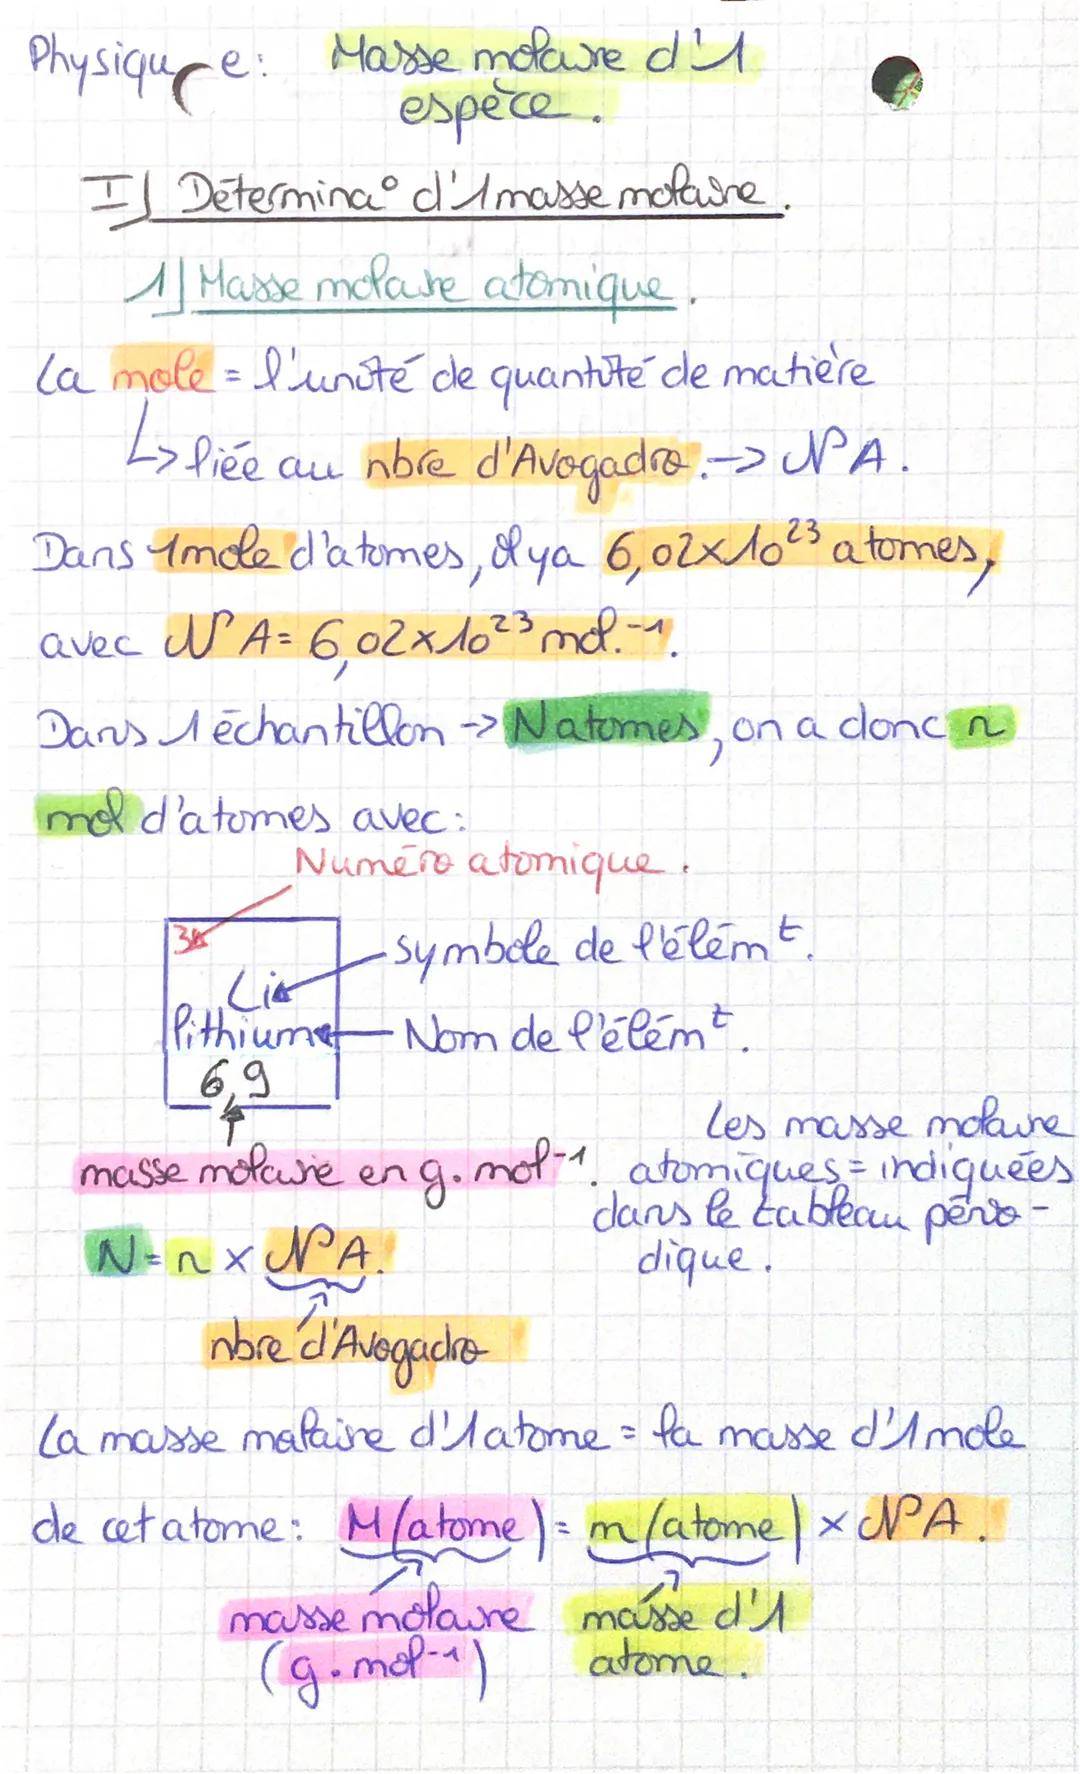 Physique: Masse molaire d'1
espèce.
I] Détermina° d'1 masse molaire.
1] Masse molaire atomique.
La mole = l'unité de quantité de matière
↳ liée au nbre d'Avogadro. -> NA.
Dans 1 mole d'atomes, il y a 6,02×10²³ atomes,
avec NA = 6,02×10²³ mol.⁻¹.
Dans 1 échantillon -> N atomes, on a donc n
mol d'atomes avec:
Numéro atomique.
3
symbole de l'élémᵗ.
Li
lithium
Nom de l'élémᵗ.
6,9
masse molaire en g.mol⁻¹.
Les masse molaire
atomiques = indiquées
dans le tableau pério-
dique.
N = n × NA.
nbre d'Avogadro
La masse malaire d'1 atome = la masse d'1 mole
de cet atome: M(atome) = m(atome) × NA.
masse molaire
(g.mol⁻¹)
masse d'1
atome.